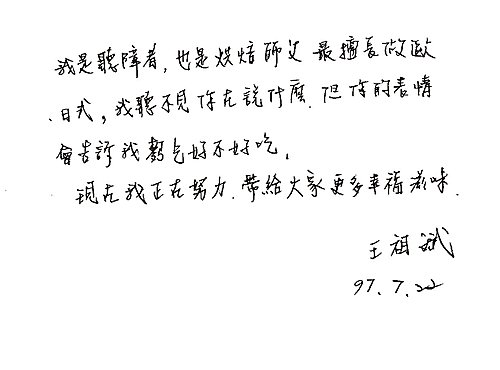 我是聽障者,也是烘焙師父 最擅長做歐
、日式。我聽不見你在說什麼.但你的表情
會告訴我麵包好不好吃。
現在我正在努力.帶給大家更多幸福滋味.
王祖斌
97.7.22